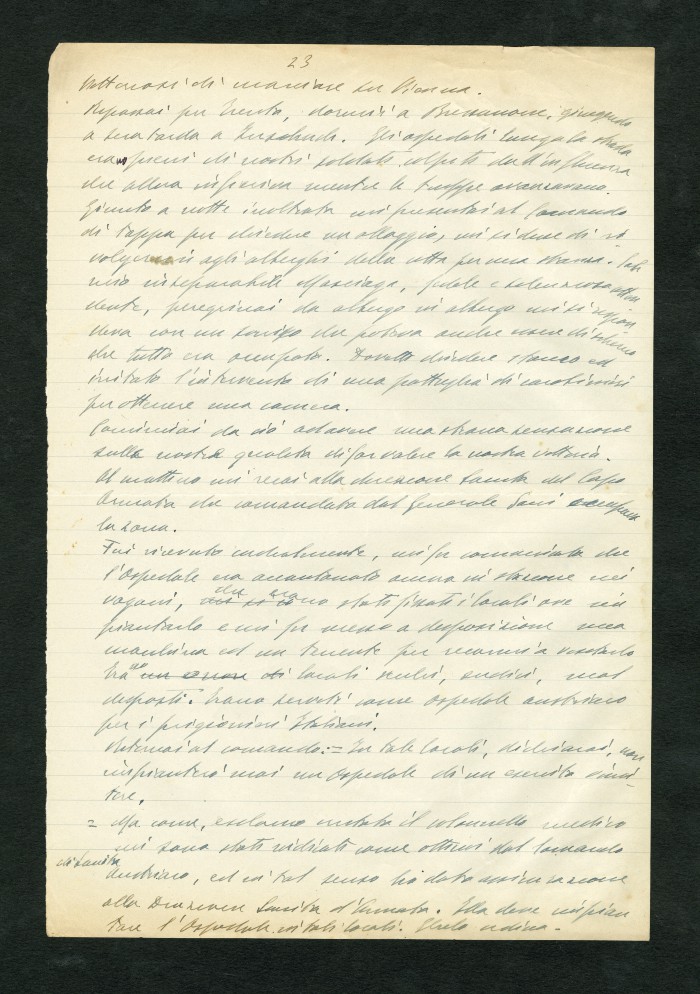 23
di marciare su Vienna.
Ripassai per Trento, dormii a Bressanone, giungendo
a sera tarda a Innsbruck. Gli ospedali lungo la strada
erano pieni di nostri soldati colpiti dall'influenza
che allora infieriva mentre le truppe avanzavano.
Giunto a notte inoltrata mi presentai al Comando
di Tappa per chiedere un alloggio, mi si disse di ri
volgermi agli alberghi della città per una stanza. Col
mio inseparabile fedele e silenzioso atten
dente, peregrinai da albergo in albergo mi si rispon
deva con un sorriso che poteva anche essere di scherno
che tutto era occupato. Dovetti chiedere stanco ed
irritato l'intervento di una pattuglia di carabinieri
per ottenere una camera.
Cominciai da ciò ad avere una strana sensazione
sulla nostra qualità di far valere la nostra vittoria.
Al mattino mi recai alla direzione Sanità del Corpo
Armata che comandato dal Generale Sani occupava
la zona.
Fui ricevuto cordialmente, mi fu comunicato che
l'Ospedale era accantonato ancora in stazione nei
vagoni, che erano stati fissati i locali ove im
piantarlo e mi fu messo a disposizione una
macchina ed un tenente per recarmi a visitarlo
Erano locali scuri, sudici, mal
disposti. Erano serviti come Ospedale austriaco
per i prigionieri Italiani.
Ritornai al comando: = In tali locali, dichiarai, non
impianterò mai un Ospedale di un esercito vinci-
tore.
= Ma come, esclamò irritato il colonnello medico
mi sono stati indicati come ottimi dal Comando
di Sanità
Austriaco, ed in tal senso ho dato assicurazione
alla Direzione Sanità d'Armata. Ella deve impian
tare l'Ospedale in tali locali. Glielo ordino. -